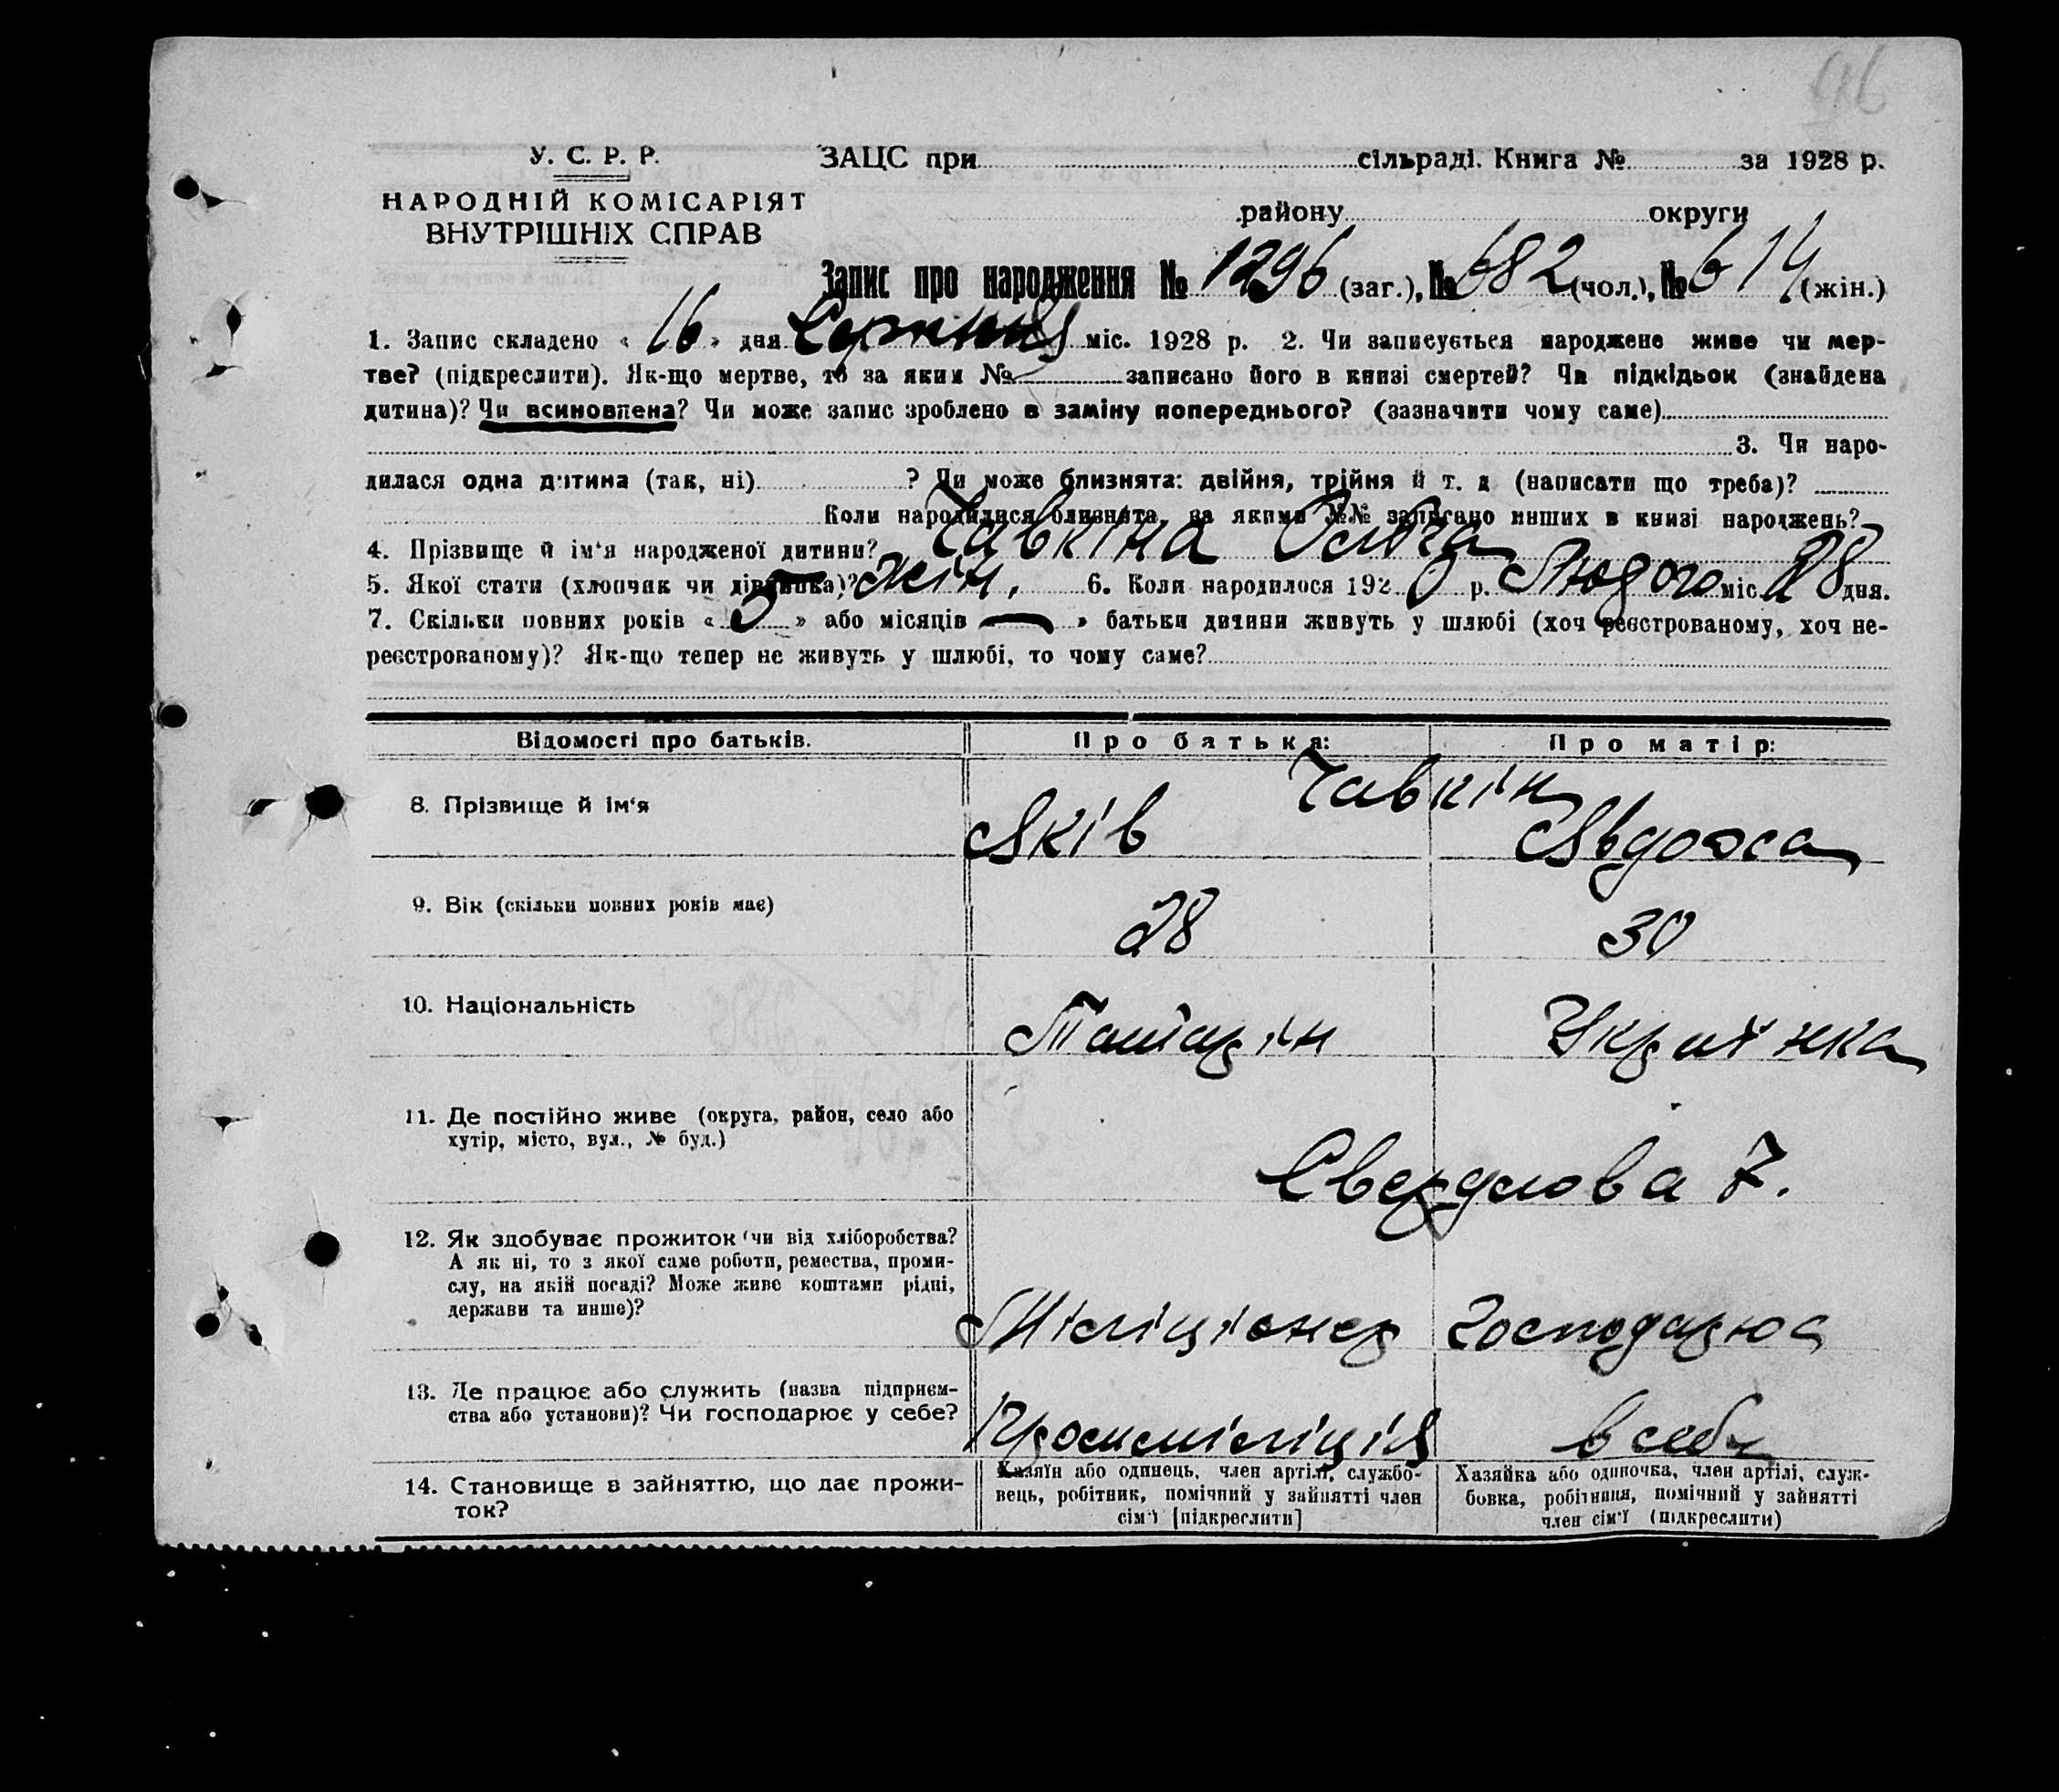 96
У. С. Р. Р.
НАРОДНІЙ КОМІСАРІЯТ
ВНУТРІШНІХ СПРАВ
ЗАЦС при сільраді. Книга № за 1928 р.
району округи
Запис про народження № 1296 (заг.), № 682 (чол.), № 614 (жін.)
1. Запис складено « 16 » дня Серпня міс. 1928 р. 2. Чи записується народжене живе чи мер-
тве? (підкреслити). Як-що мертве, то за яким № записано його в книзі смертей? Чи підкідьок (знайдена
дитина)? Чи всиновлена? Чи може запис зроблено в заміну попереднього? (зазначити чому саме)
3. Чи наро-
дилася одна дитина (так, ні) ? Чи може близнята: двійня, трійня й т. д (написати що треба)?
Коли народилися близнята, за якими №№ записано инших в книзі народжень?
4. Прізвище й ім‘я народженої дитини? Чавкіна Ольга
5. Якої стати (хлопчик чи дівчинка)? Жін. 6. Коли народилося 1920 р. Лютого міс. 28 дня.
7. Скільки повних років « 5 » або місяців — » батьки дитини живуть у шлюбі (хоч реєстрованому, хоч не-
реєстрованому)? Як-що тепер не живуть у шлюбі, то чому саме?
Відомості про батьків. Про батька: Про матір:
Чавкін
8. Прізвище й ім‘я Яків Явдоха
9. Вік (скільки повних років має) 28 30
10. Національність Татарін Украінка
11. Де постійно живе (округа, район, село або
хутір, місто, вул., № буд.)
Свердлова 7.
12. Як здобуває прожиток (чи від хліборобства?
А як ні, то з якої саме роботи, ремества, проми-
слу, на якій посаді? Може живе коштами рідні,
держави та инше)?
Міліціонер Господарює
13. Де працює або служить (назва підприєм-
ства або установи)? Чи господарює у себе?
Проммініліція в себе
14. Становище в зайняттю, що дає прожи-
ток?
Хазяїн або одинець, член артілі, службо-
вець, робітник, помічний у зайнятті член
сім‘ї [підкреслити]
Хазяйка або одиночка, член артілі, служ-
бовка, робітниця, помічний у зайнятті
член сім‘ї (підкреслити)